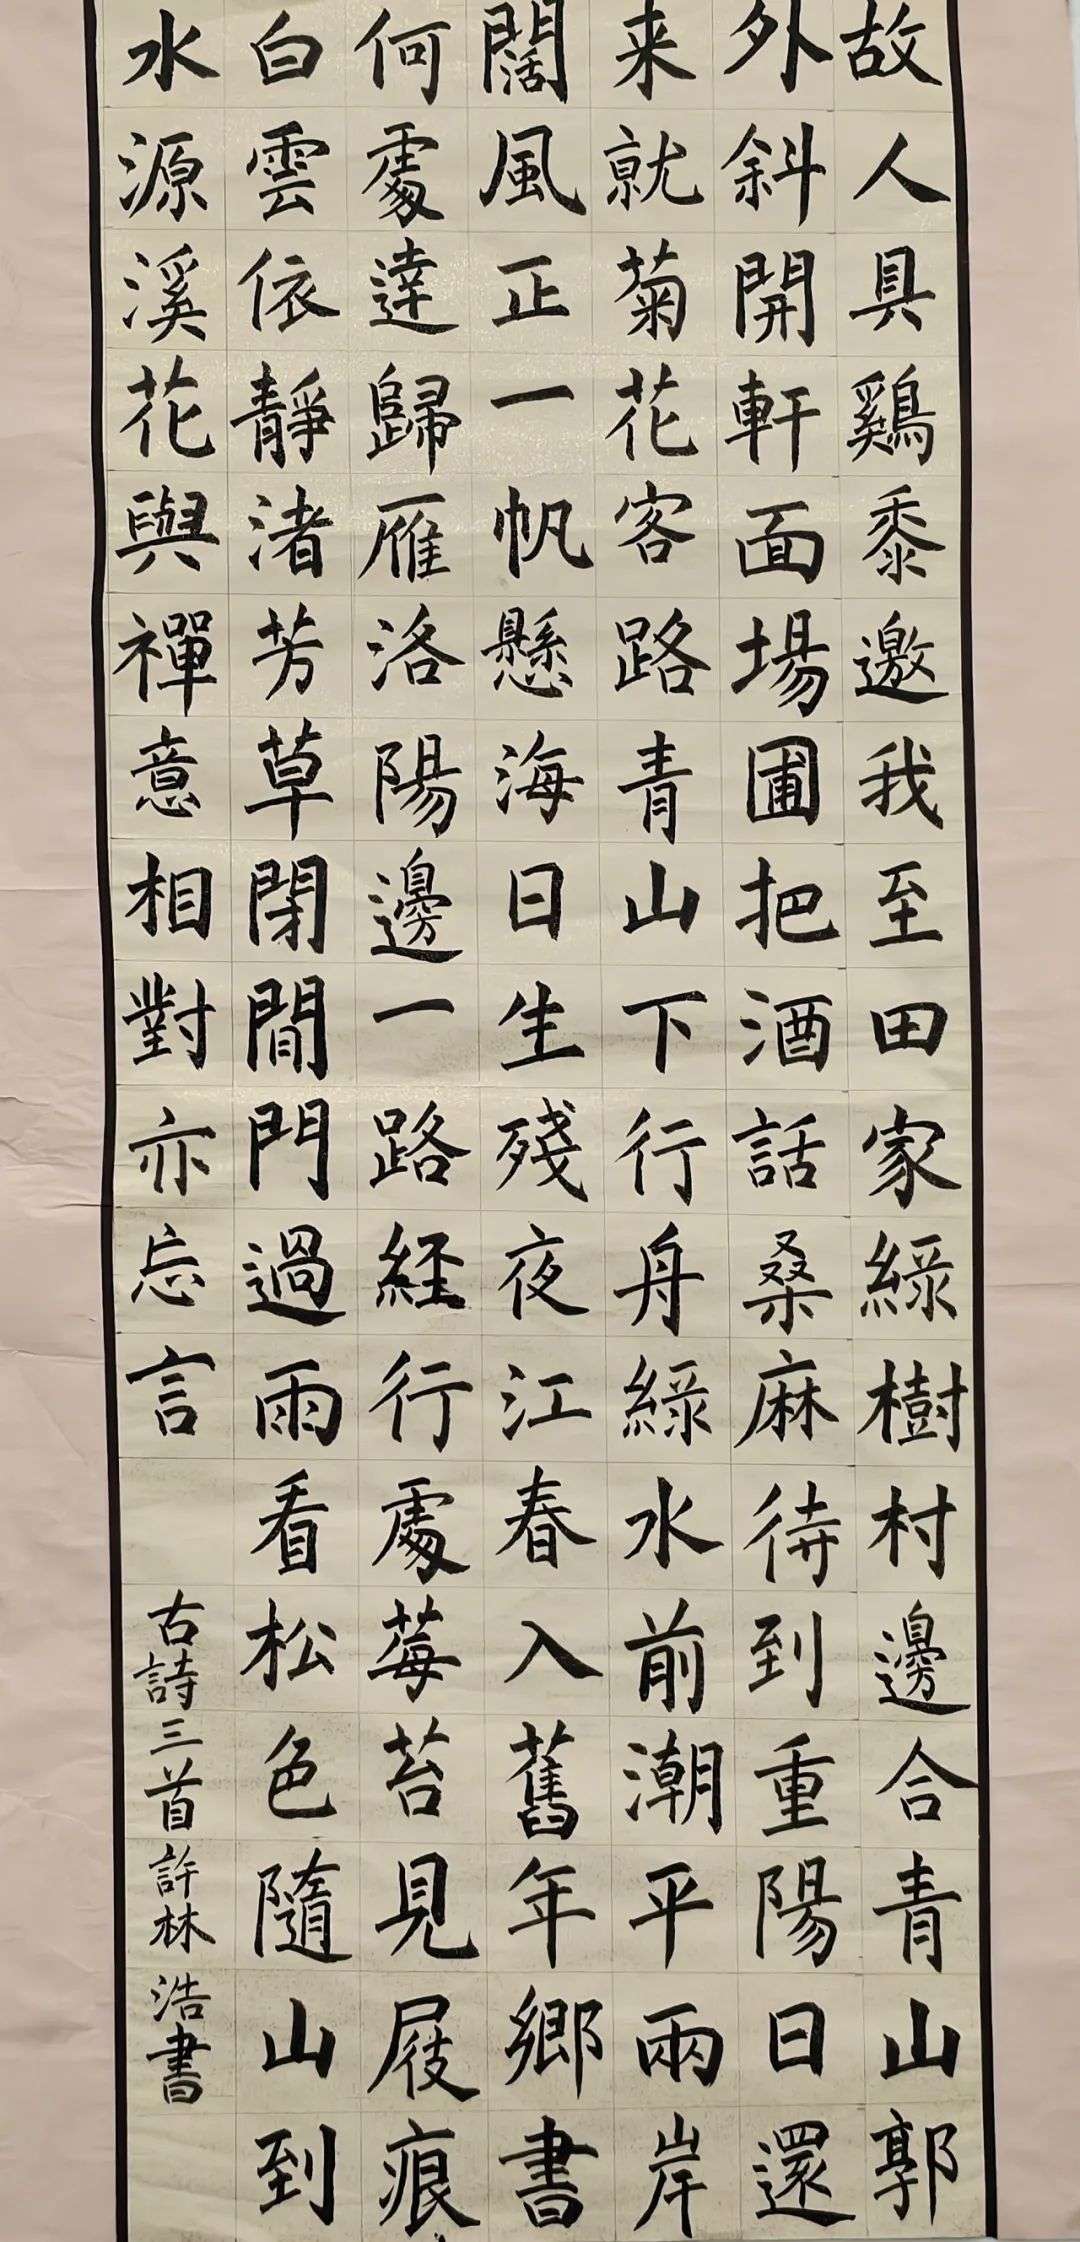 故人具鷄黍邀我至田家綠樹村邊合青山郭
外斜開軒面場圃把酒話桑麻待到重陽日還
来就菊花客路青山下行舟綠水前潮平兩岸
闊風正一帆懸海日生殘夜江春入舊年鄉書
何處達歸雁洛陽邊一路経行處莓苔見屐痕
白雲依靜渚芳草閉閒門過雨看松色隨山到
水源溪花與禪意相對亦忘言
古詩三首許林浩書